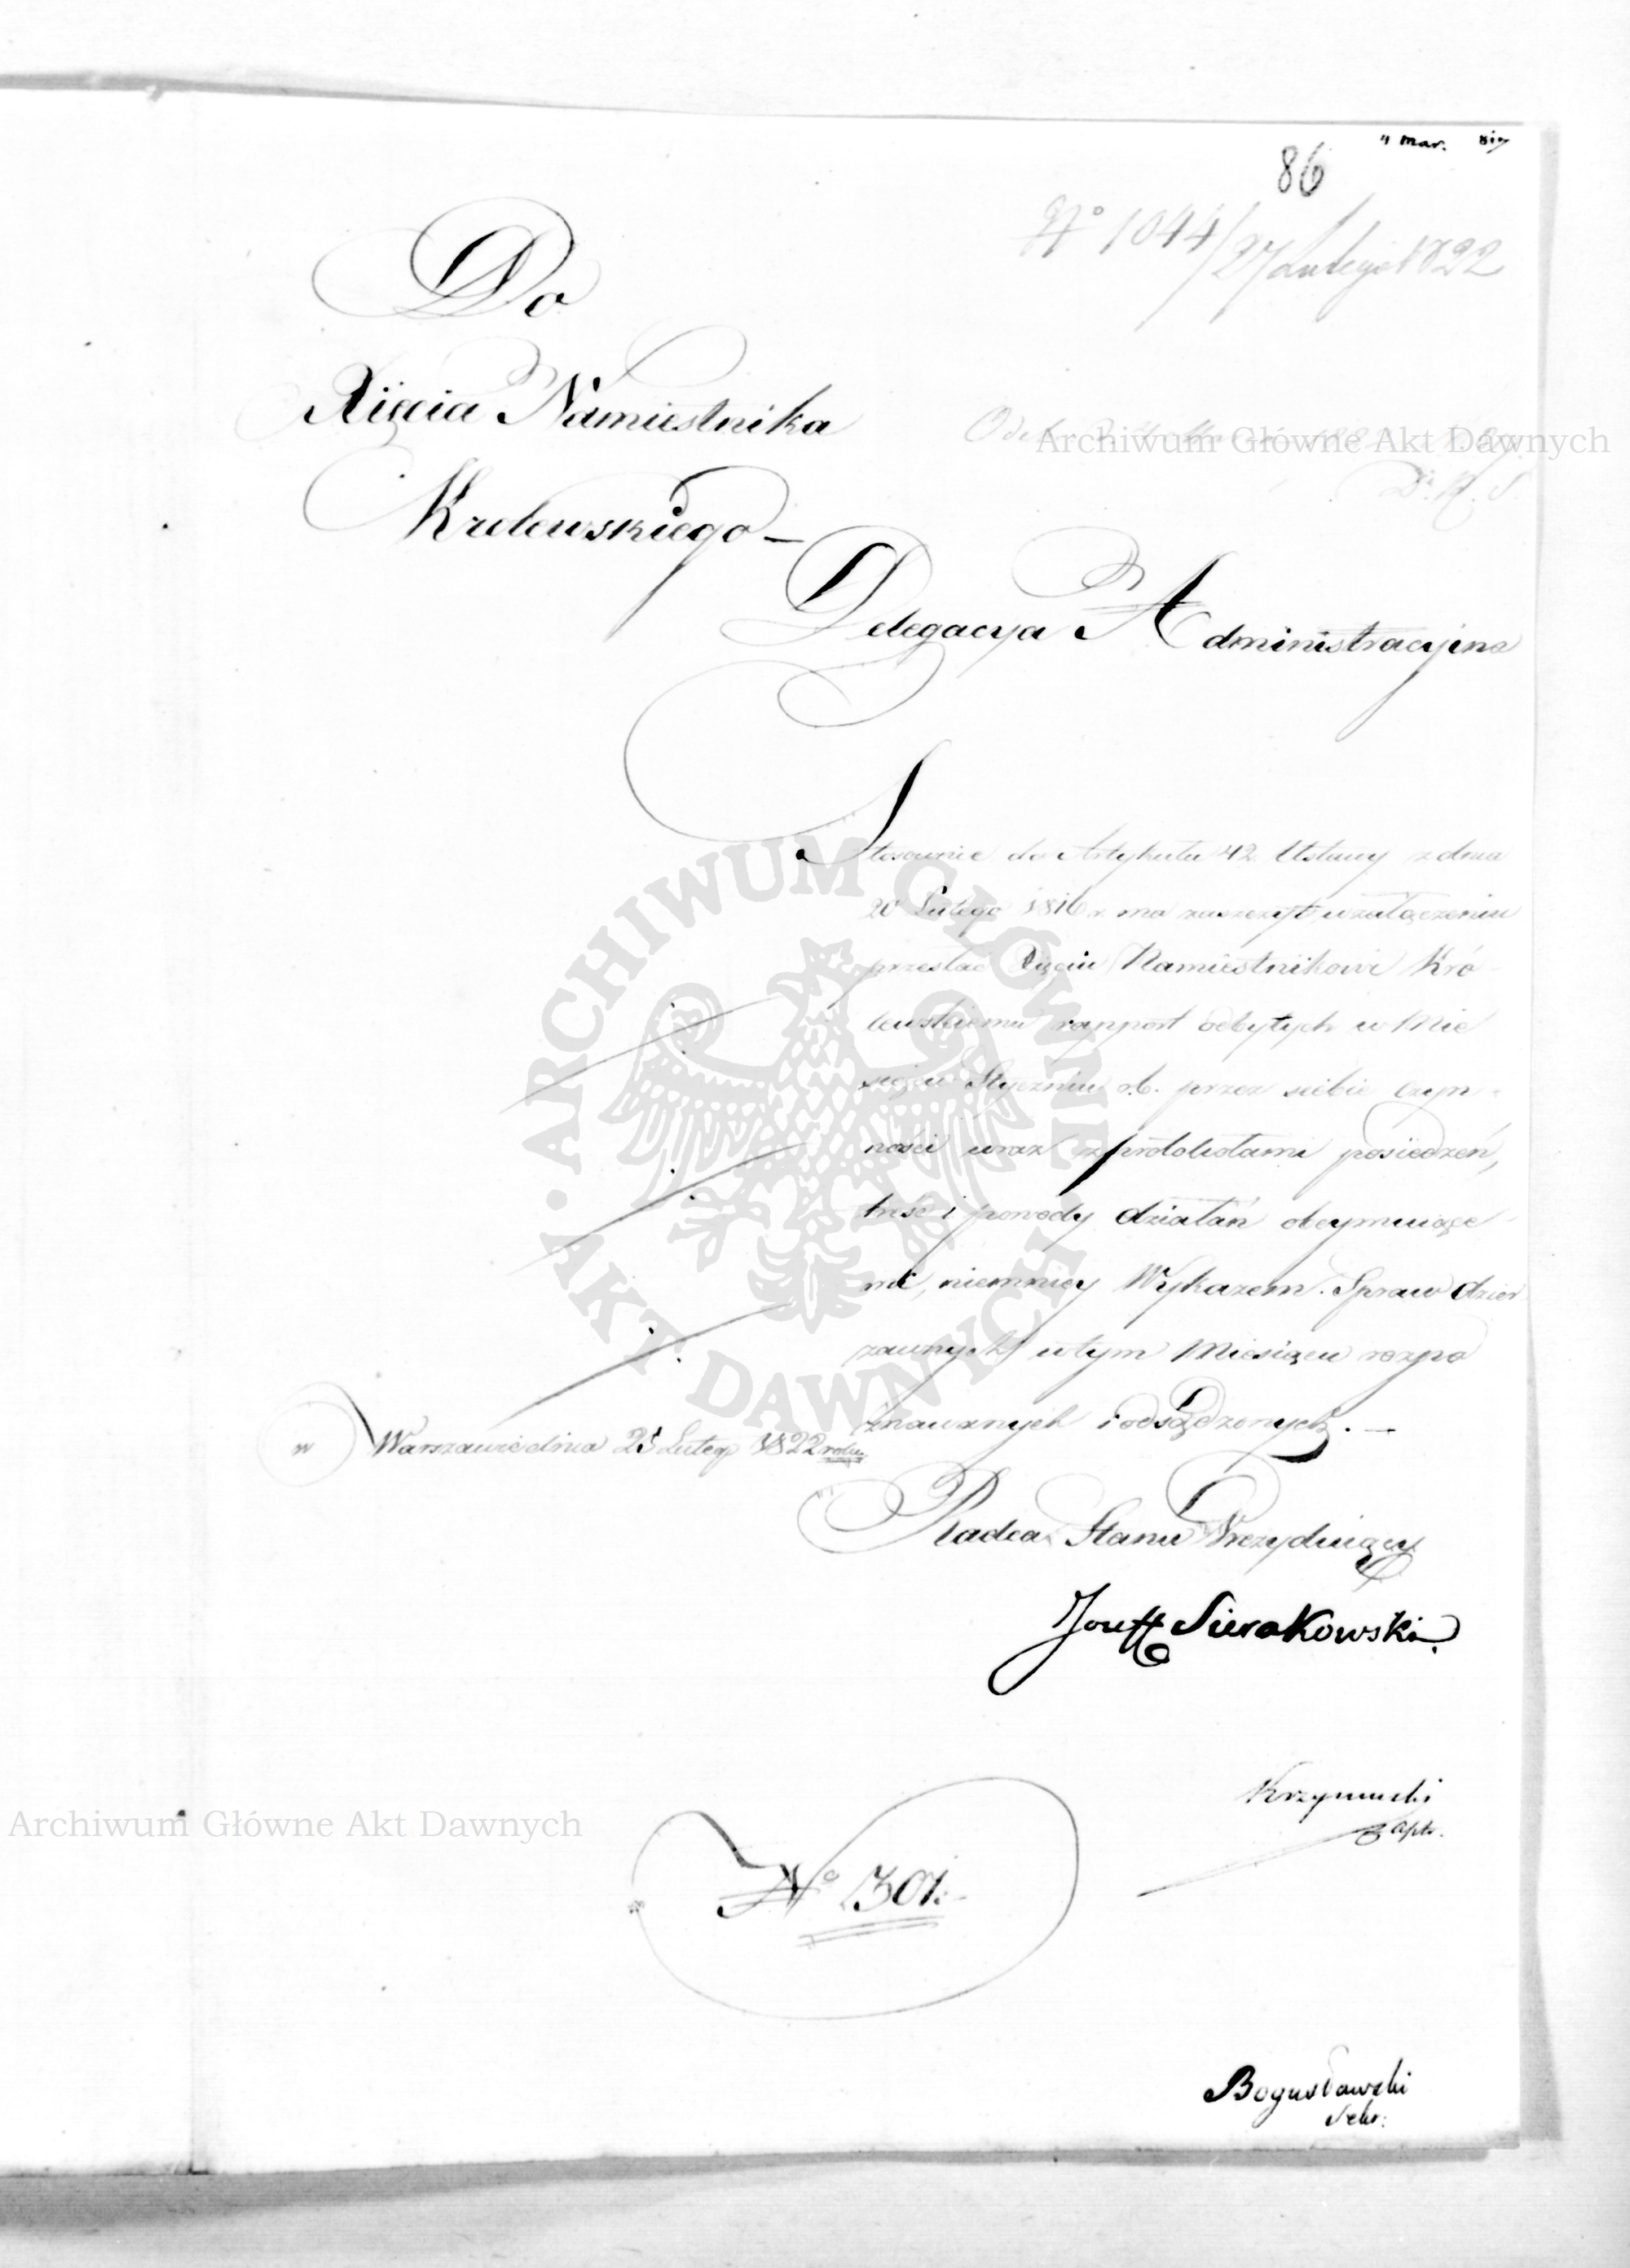 4 Mar.
86
No 1044/27 Lutego 1822
Do
Xięcia Namiestnika
Archiwum Główne Akt Dawnych
D. R. S.
Królewskiego
Delegacya Administracyina
Stosownie do Artykułu 42 Ustawy z dnia
20 Lutego 1816 r. ma zaszczyt w załączeniu
przesłać Xięciu Namiestnikowi Kró
lewskiemu rapport odbytych w Mie
siącu Styczniu r.b. przez siebie czyn-
ności wraz z protokołami posiedzeń,
treść i powody działań obeymuiące-
mi, niemniey Wykazem Spraw dzier
żawnych w tym Miesiącu rozpo
znawanych i odsądzonych. —
w Warszawie dnia 25 Lutego 1822 roku
Radca Stanu Prezyduiący
Joseff Sierakowski.
ARCHIWUM GŁÓWNE AKT DAWNYCH
Krzymuski
Archiwum Główne Akt Dawnych
No 301.
Bogusławski
Sekr: